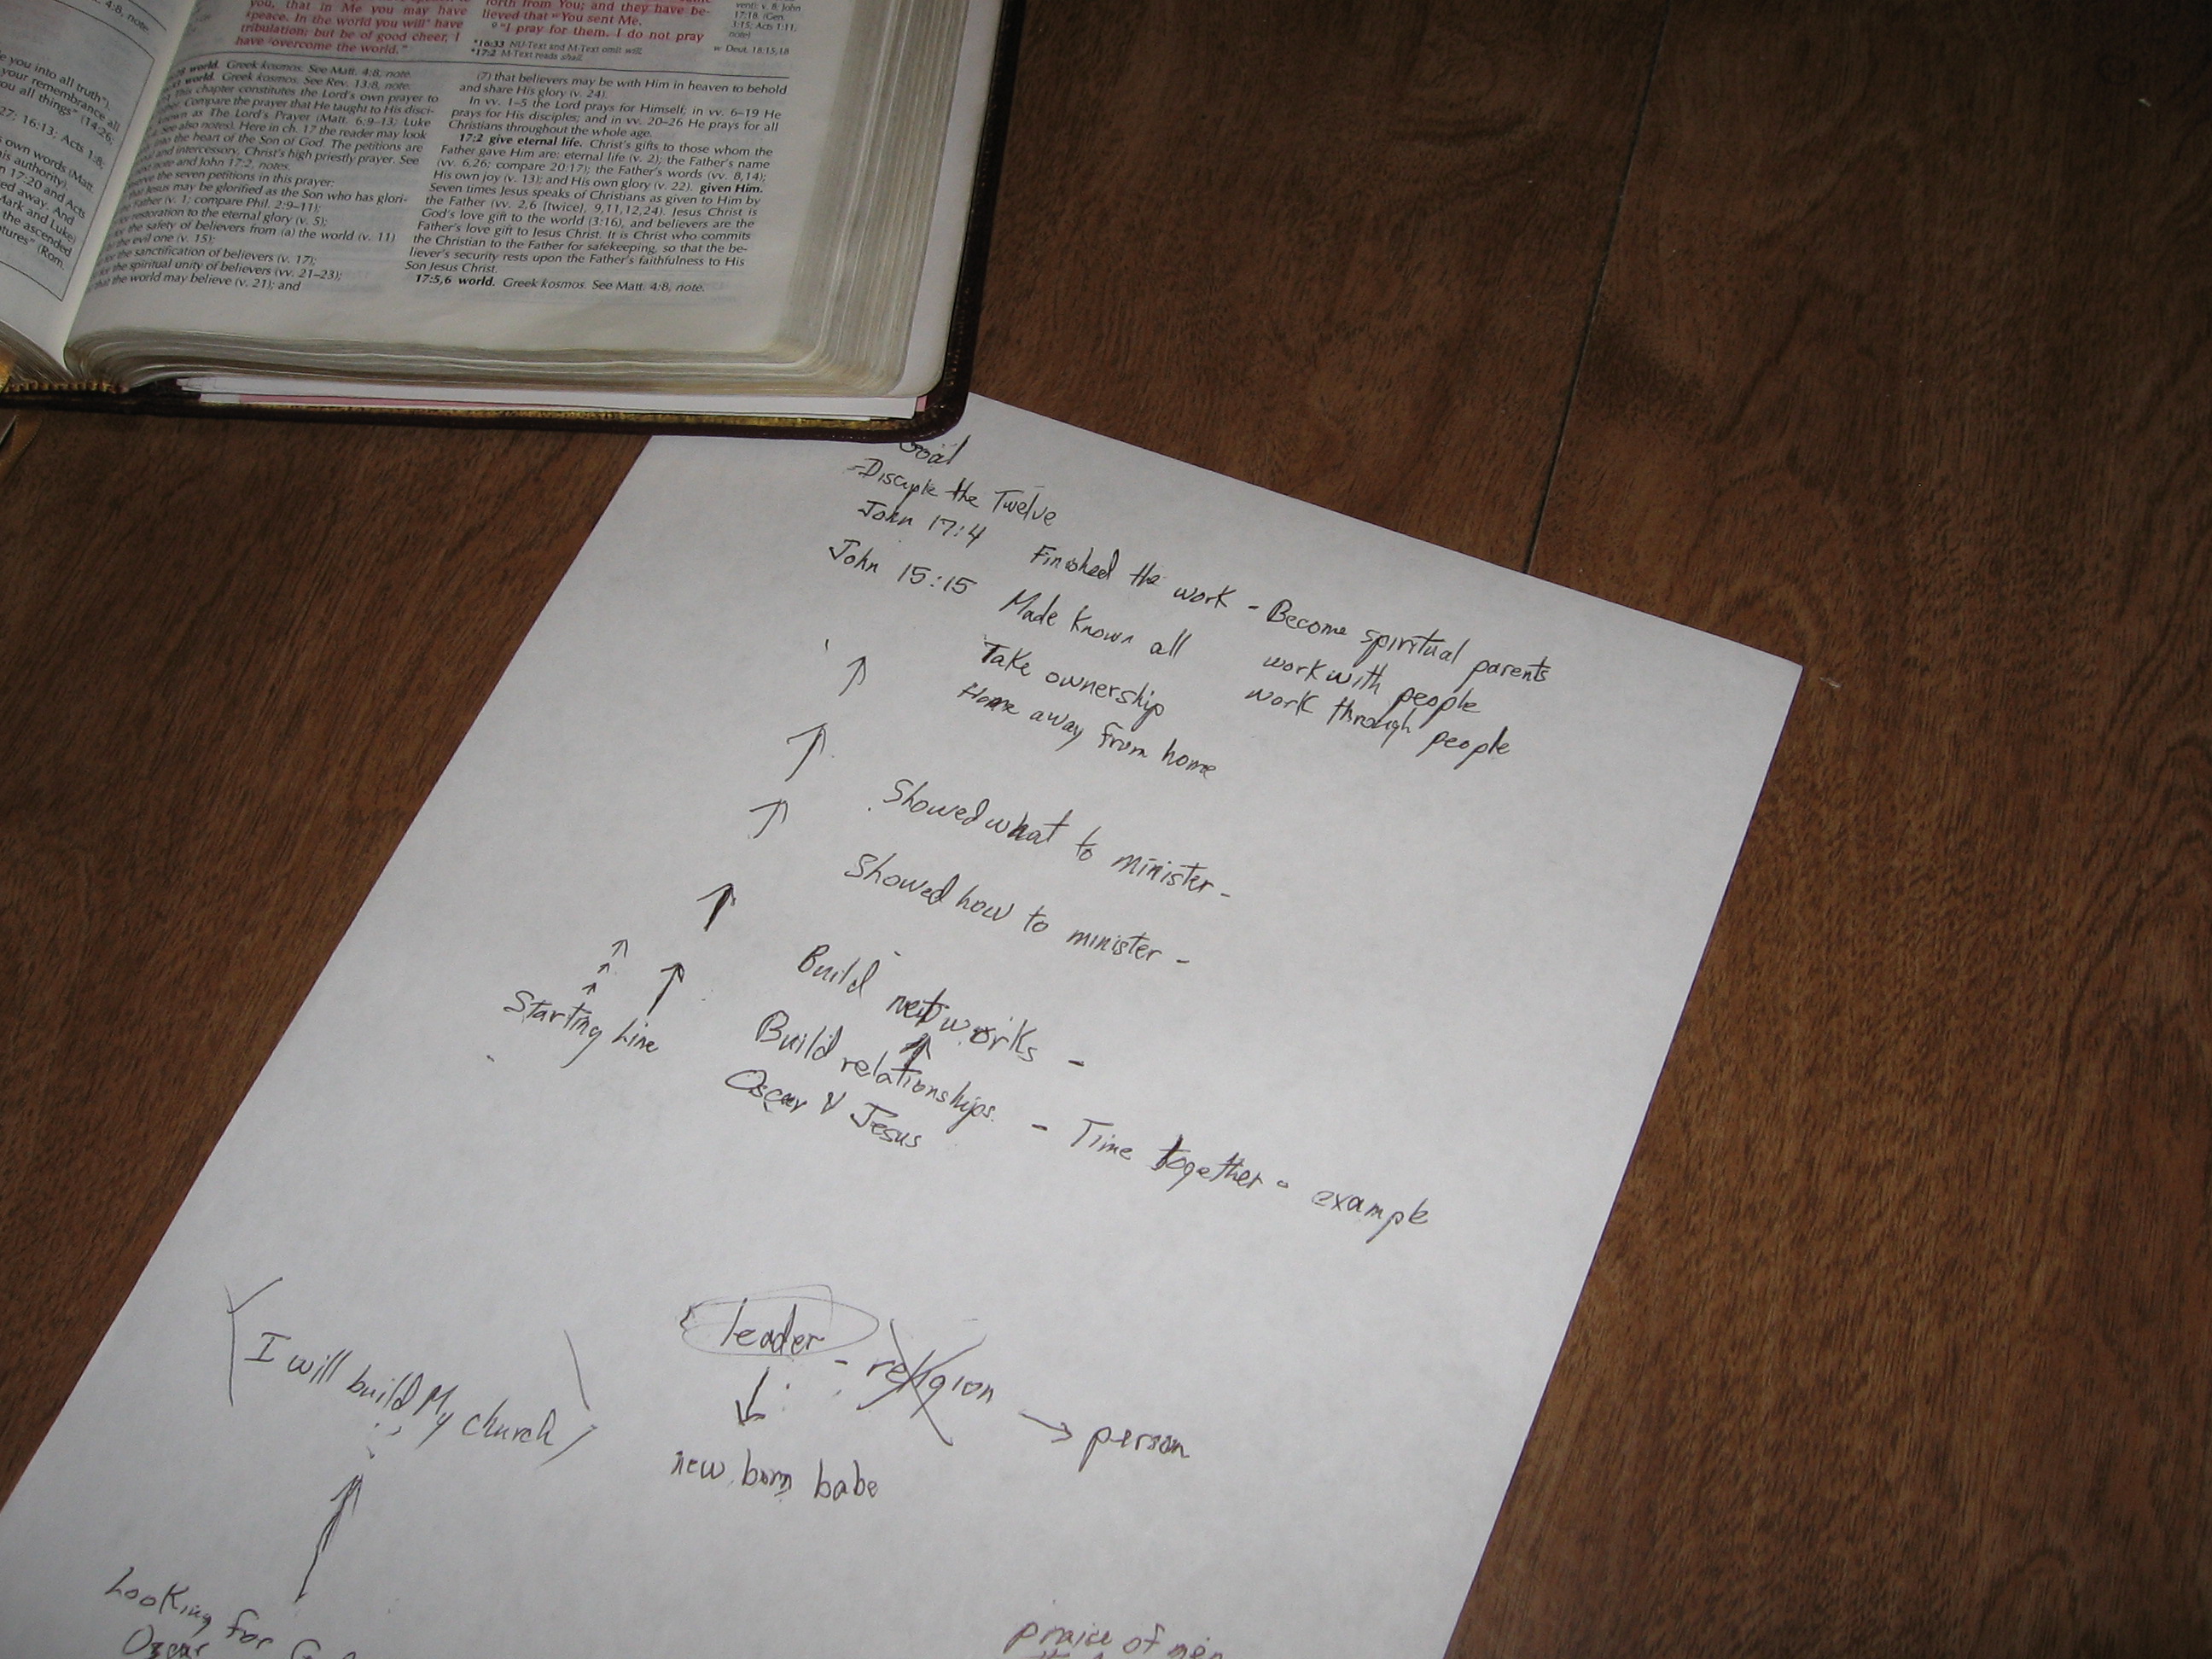 4:8, note.
e you into all truth").
your remembrance all
ou all things" (14:26;
27; 16:13; Acts 1:8;
own words (Matt.
is authority).
n 17:20 and Acts
ed away. And
Mark and Luke)
the ascended
tures" (Rom.
you, that in Me you may have
peace. In the world you will have
tribulation; but be of good cheer, I
have overcome the world."
forth from You; and they have be-
lieved that You sent Me.
9 "I pray for them. I do not pray
*16:33 NU-Text and M-Text omit will.
*17:2 M-Text reads shall.
vent): v. 8; John
17:18. (Gen.
1:15; Acts 1:11,
note)
w Deut. 18:15,18
world. Greek kosmos. See Matt. 4:8, note.
world. Greek kosmos. See Rev. 13:8, note.
This chapter constitutes the Lord's own prayer to
Compare the prayer that He taught to His disci-
known as The Lord's Prayer (Matt. 6:9–13; Luke
See also notes). Here in ch. 17 the reader may look
into the heart of the Son of God. The petitions are
and intercessory. Christ's high priestly prayer. See
next note and John 17:2, notes.
the seven petitions in this prayer:
that Jesus may be glorified as the Son who has glori-
Father (v. 1; compare Phil. 2:9–11);
restoration to the eternal glory (v. 5);
for the safety of believers from (a) the world (v. 11)
the evil one (v. 15);
for the sanctification of believers (v. 17);
for the spiritual unity of believers (vv. 21–23);
that the world may believe (v. 21); and
(7) that believers may be with Him in heaven to behold
and share His glory (v. 24).
In vv. 1–5 the Lord prays for Himself; in vv. 6–19 He
prays for His disciples; and in vv. 20–26 He prays for all
Christians throughout the whole age.
17:2 give eternal life. Christ's gifts to those whom the
Father gave Him are: eternal life (v. 2); the Father's name
(vv. 6,26; compare 20:17); the Father's words (vv. 8,14);
His own joy (v. 13); and His own glory (v. 22). given Him.
Seven times Jesus speaks of Christians as given to Him by
the Father (vv. 2,6 [twice], 9,11,12,24). Jesus Christ is
God's love gift to the world (3:16), and believers are the
Father's love gift to Jesus Christ. It is Christ who commits
the Christian to the Father for safekeeping, so that the be-
liever's security rests upon the Father's faithfulness to His
Son Jesus Christ.
17:5,6 world. Greek kosmos. See Matt. 4:8, note.
Goal
-Disciple the Twelve
John 17:4 Finished the work - Become spiritual parents
John 15:15 Made known all work with people
Take ownership work through people
Home away from home
Showed what to minister -
Showed how to minister -
Build networks -
Starting Line
Build relationships - Time together - example
Oscar & Jesus
leader - religion → person
new born babe
I will build My church
Looking for
Oscar
praise of men